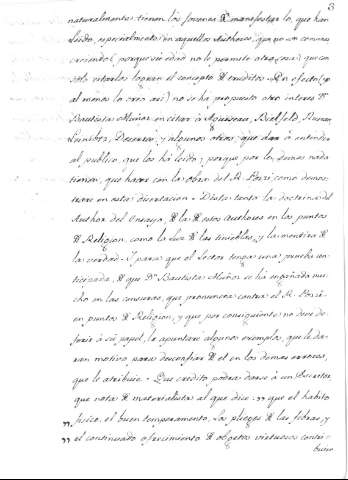 3
naturalmente tienen los jovenes de manifestar lo que han
leido, especialmente en aquellos Authores, que no con
porque su edad no le permite otra cosa) que con
solo citarlos logran el concepto de eruditos. En efecto (yo
al menos lo creo asi) no se ha propuesto otro interes Dn.
Bautista Muñoz en citar à Rousseau, Bielfeld,
Descartes, y algunos otros, que dar à entender
al publico, que los há leido; porque por lo demas nada
tienen, que hacer con la obra del R. Pozzi, como demos-
trare en esta disertacion. Dista tanto la doctrina del
Author del Ensayo, de la de estos Authores en los puntos
de Religion, como la luz de las tinieblas, y la mentira de
la verdad. Y para que el Lector tenga una prueba an-
ticipada, de que Dn. Bautista Muñoz se há engañado mu-
cho en las censuras, que pronuncia contra el R. Pozzi
en puntos de Religion, y que por consiguiente no deve de-
ferir à sú papel, le apuntare algunos exemplos, que le da-
ran motivo para desconfiar de el en los demas errores,
que le atribuie. Que credito podra darse à un Escritor
que nota de materialista al que dice: „ que el habito
„ fisico, el buen temperamento, los pliegos de las febras, y
„ el continuado ofrecimiento de objetos virtuosos contri-
buien